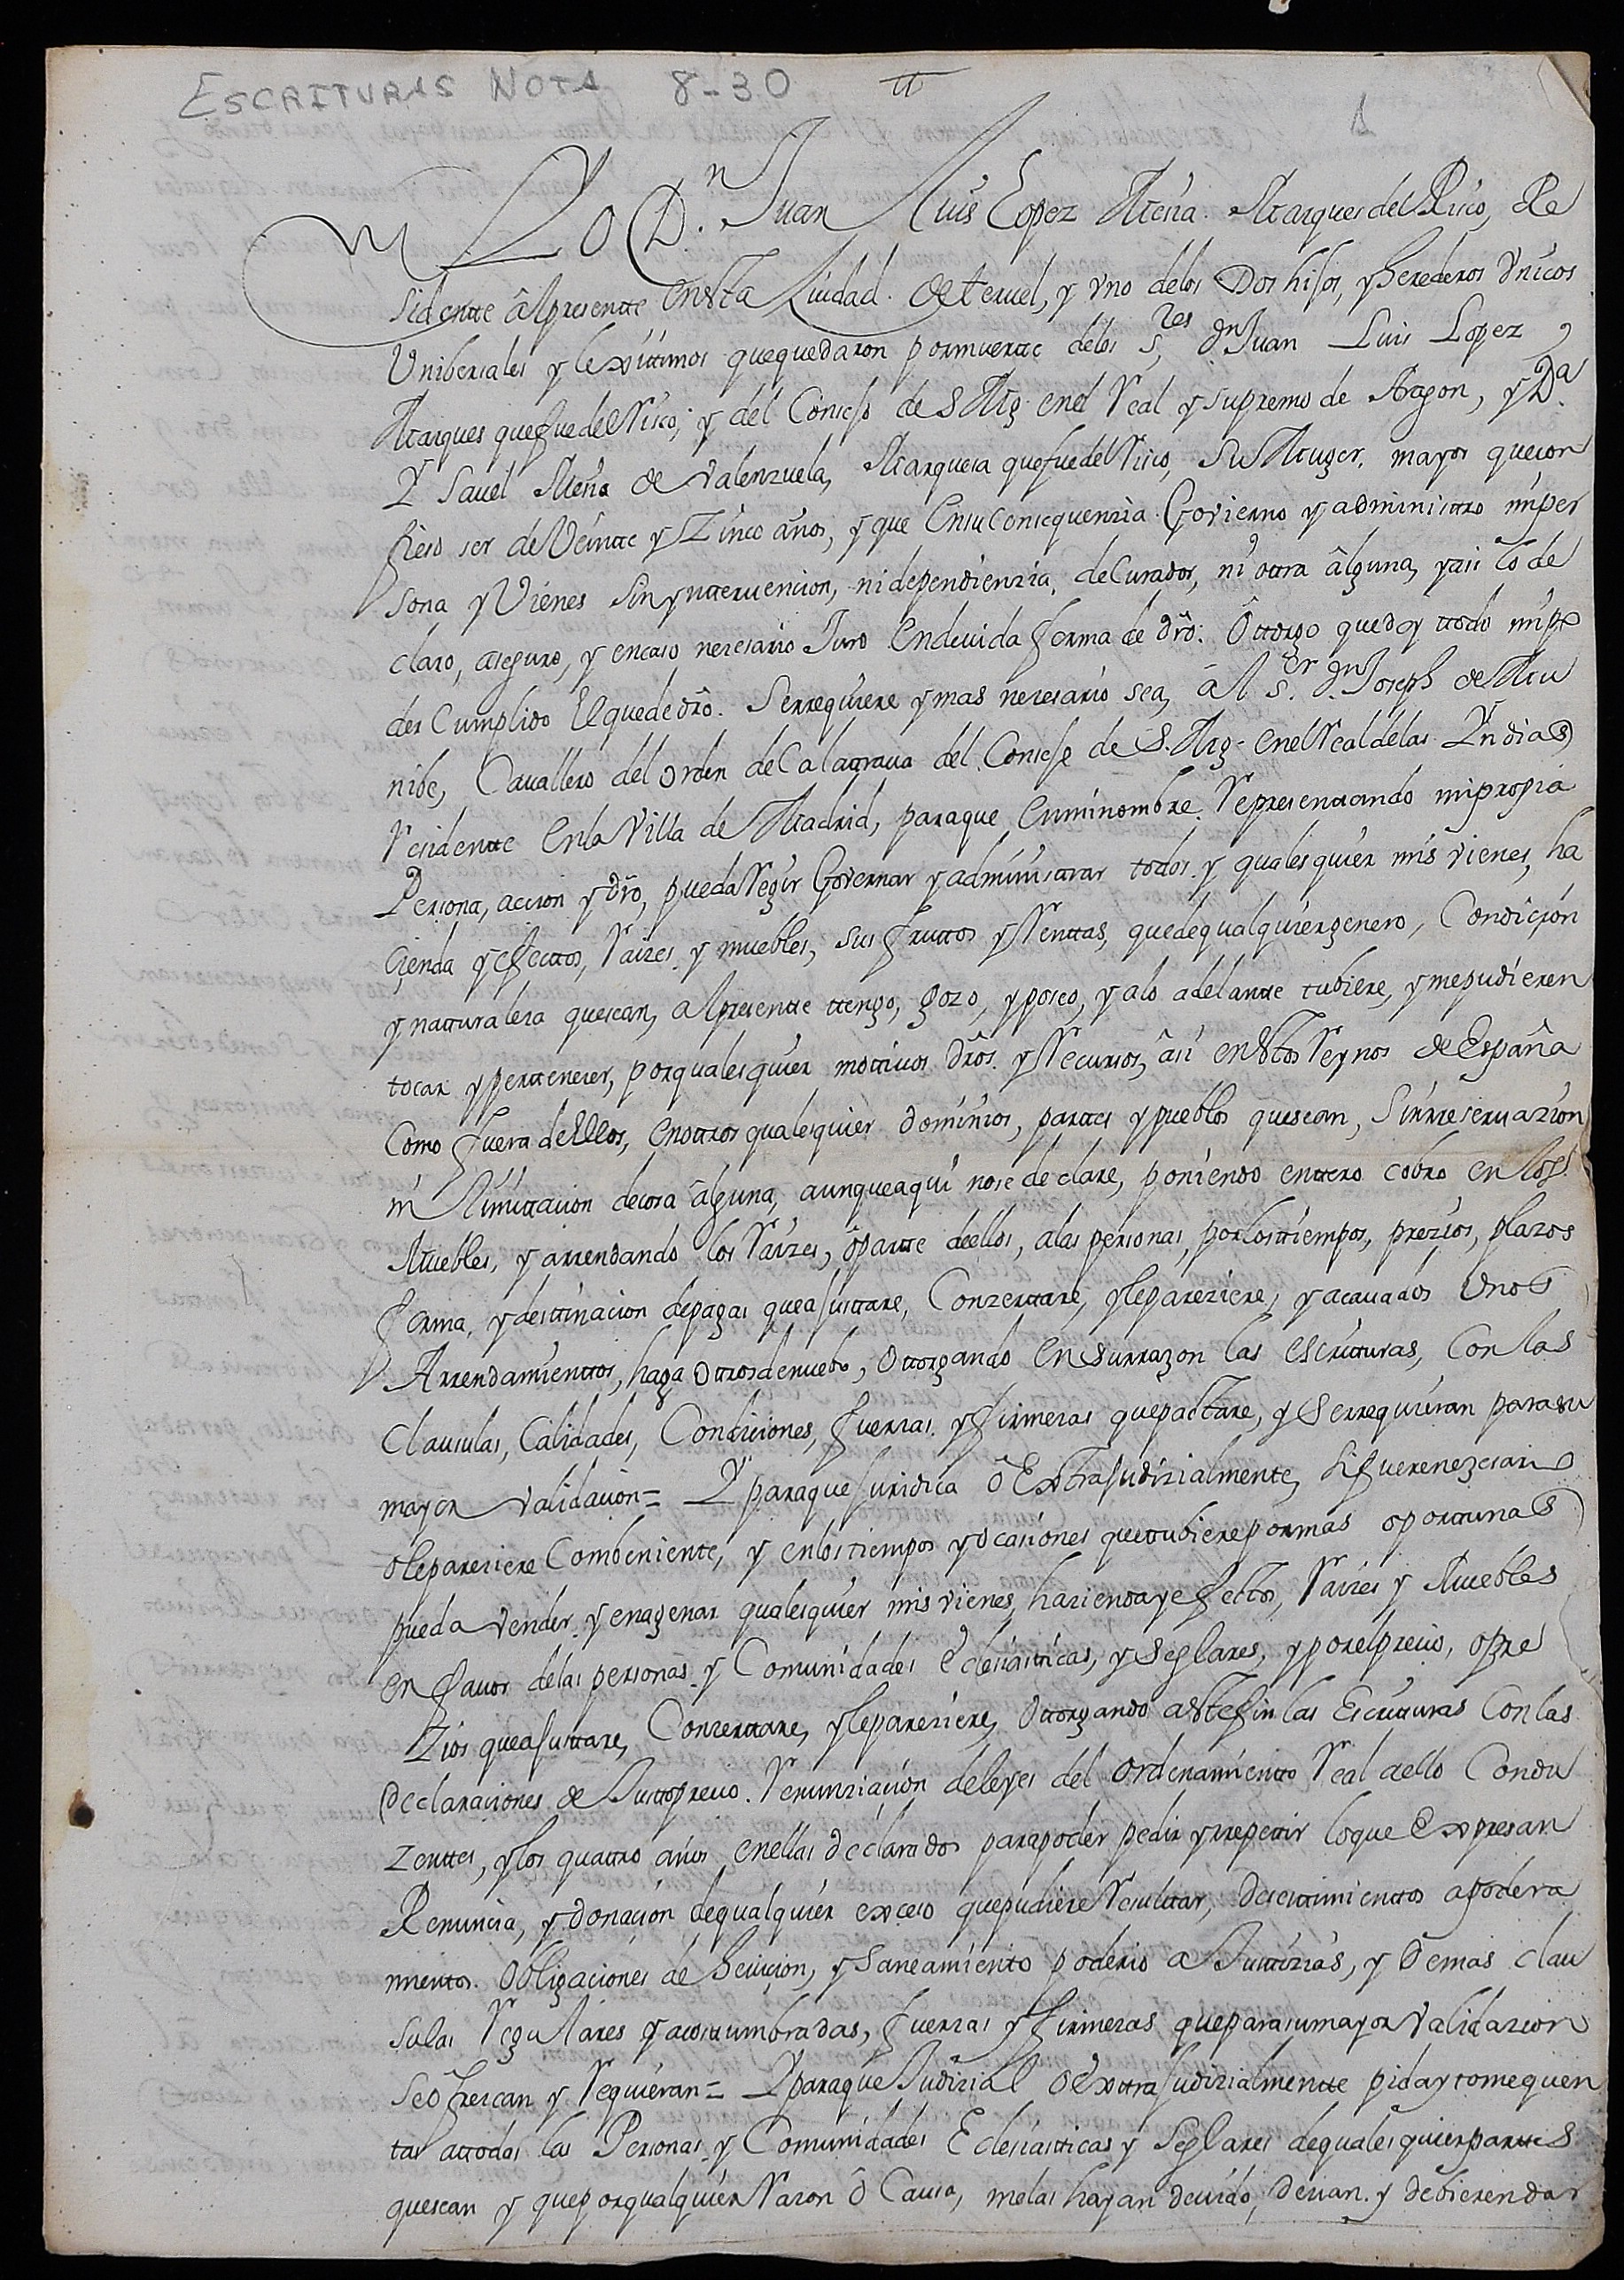 ESCRITURAS NOTA 8-30
1
Yo D.n Juan Luis Lopez Mesia. Marques del Risco, Re
sidentte âl presentte en esta Ciudad. de teruel, y vno delos Dos hijos, y herederos Vnicos
Vnibersales y lexittimos que quedaron por muertte delos S.res D.n Juan Luis Lopez,
Marques que fue del Risco, y del Consejo de S Mg. en el Real y supremo de Aragon, y D.a
Ysauel Mesia de Valenzuela, Marquesa que fue del Risco, Su Muger. mayor que con
fieso ser de Veintte y Zinco años, y que En su Consequenzia. Govierno y administtro mi per
sona y Vienes Sin ynttervencion, ni dependienzia, de Curador, ni ottra âlguna, y asi lo de
claro, aseguro, y encaso nezesario Juro En deuida forma de dro: Ottorgo que doy ttodo mi po
der Cumplido El que de dro. Se rrequiere y mas nezesario sea, âl S.or D.n Joseph de Mu
nibe, Cavallero del Orden de Calattraua del Consejo de S. Mg. en el Real delas Yndias
Residentte En la Villa de Madrid, paraque En mi nombre. Representtando mi propia
Persona, accion y dro, pueda Regir Governar y administtrar todos. y qualesquier mis vienes, ha
cienda y efecttos, Raizes. y muebles, sus fruttos y Renttas, que de qualquier genero, Condicion
y natturaleza que sean, al presentte ttengo, gozo, y poseo, y alo adelantte tubiere, y me pudieren
tocar y perttenezer, por qualesquier mottiuos dros. y Recursos, âsi en esttos Reynos de España
Como fuera de Ellos, en ottros qualesquier dominios, parttes y pueblos que sean, Sin rreseruazion
ni limittacion de cosa âlguna, aunque aqui no se declare, poniendo enttero cobro en los
Muebles, y arrendando los Raizes, ô partte de ellos, alas personas, por los ttiempos, prezios, plazos
forma, y desttinacion de pagas que ajusttare, Conzerttare, y le pareziere, y acauados Vnos
Arrendamienttos, haga Ottros de nuebo, Ottorgando En su rrazon las escritturas, Con las
Clausulas, Calidades, Condiciones, fuerzas. y firmezas que pacttare, y Se rrequieran para su
mayor validacion = Y paraque Juridica ô Exttrajudizialmente, Si fuere nezesario
o le pareziere Combeniente, y en los tiempos y ocasiones que ttubiere por mas oporttunas
pueda vender. y enagenar qualesquier mis vienes, hazienda y efecttos, Raizes y Muebles
en fauor delas personas. y Comunidades eclesiastticas, y Seglares, y por el precio, o pre
Zios que ajusttare, Conzerttare, y le pareziere, Ottorgando a este fin las Escritturas Con las
declaraciones de Justto precio. Renunziacion de leyes del Ordenamientto Real a ello Condu
Zenttes, y los quattro años en ellas declarados para poder pedir y rrepettir lo que Expresan
Renuncia, y donacion de qualquier exceso que pudiere Resulttar, desisttimienttos apodera
mienttos. Obligaciones de heuiccion, y Saneamiento poderio a Justtizias, y demas clau
sulas Regulares y acosttumbradas, fuerzas y firmezas que para su mayor Validacion
Se ofrezcan y Requieran = Y paraque Judizial ô exttrajudizialmentte pida y tome quen
tas a ttodas las Personas. y Comunidades Eclesiastticas y Seglares de qualesquier parttes
que sean y que por qualquier Razon ô Causa, me las hayan deuido, deuan. y debieren dar